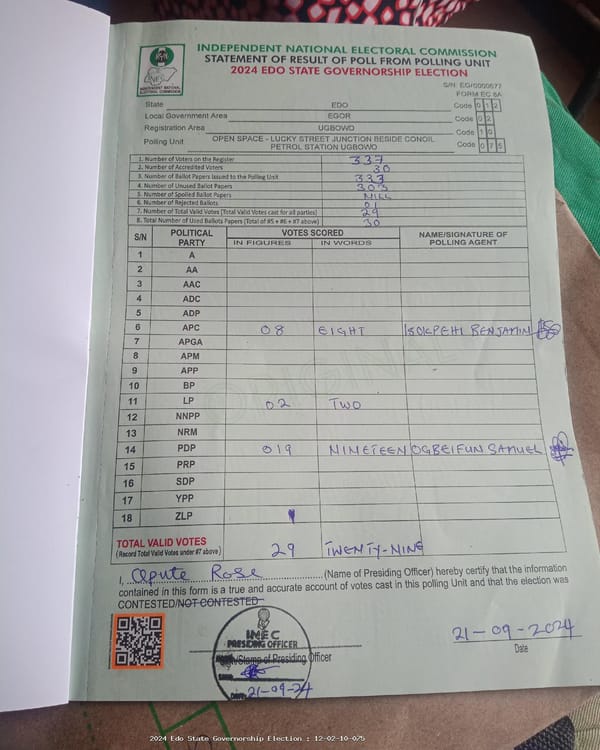 INDEPENDENT NATIONAL ELECTORAL COMMISSION
STATEMENT OF RESULT OF POLL FROM POLLING UNIT
2024 EDO STATE GOVERNORSHIP ELECTION
S/N: EG/0000577
FORM EC 8A
INEC
INDEPENDENT NATIONAL ELECTORAL COMMISSION
State EDO Code 0 1 2
Local Government Area EGOR Code 0 2
Registration Area UGBOWO Code 1 0
Polling Unit OPEN SPACE - LUCKY STREET JUNCTION BESIDE CONOIL PETROL STATION UGBOWO Code 0 7 5
1. Number of Voters on the Register 337
2. Number of Accredited Voters 30
3. Number of Ballot Papers Issued to the Polling Unit 333
4. Number of Unused Ballot Papers 303
5. Number of Spoiled Ballot Papers NILL
6. Number of Rejected Ballots 01
7. Number of Total Valid Votes (Total Valid Votes cast for all parties) 29
8. Total Number of Used Ballots Papers (Total of #5 + #6 + #7 above) 30
S/N POLITICAL PARTY VOTES SCORED NAME/SIGNATURE OF POLLING AGENT
IN FIGURES IN WORDS
1 A
2 AA
3 AAC
4 ADC
5 ADP
6 APC 08 EIGHT ISOKPEHI BENJAMIN
7 APGA
8 APM
9 APP
10 BP
11 LP 02 TWO
12 NNPP
13 NRM
14 PDP 019 NINETEEN OGBEIFUN SAMUEL
15 PRP
16 SDP
17 YPP
18 ZLP
TOTAL VALID VOTES 29 TWENTY-NINE
(Record Total Valid Votes under #7 above)
I, Apute Rose (Name of Presiding Officer) hereby certify that the information
contained in this form is a true and accurate account of votes cast in this polling Unit and that the election was
CONTESTED/NOT CONTESTED
INEC
PRESIDING OFFICER
Stamp of Presiding Officer
21-09-24
21-09-2024
Date
2024 Edo State Governorship Election : 12-02-10-075